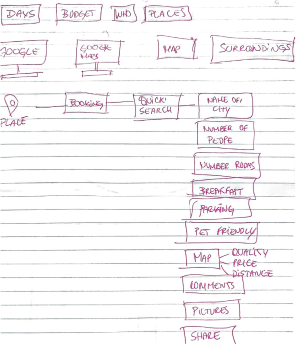 DAYS BUDGET WHO PLACES
GOOGLE GOOGLE MAPS MAP SURROUNDINGS
PLACE BOOKING QUICK SEARCH NAME OF CITY
NUMBER OF PEOPE
NUMBER ROOMS
BREAKFAST
PARKING
PET FRIENDLY
MAP QUALITY
PRICE
DISTANCE
COMMENTS
PICTURES
SHARE